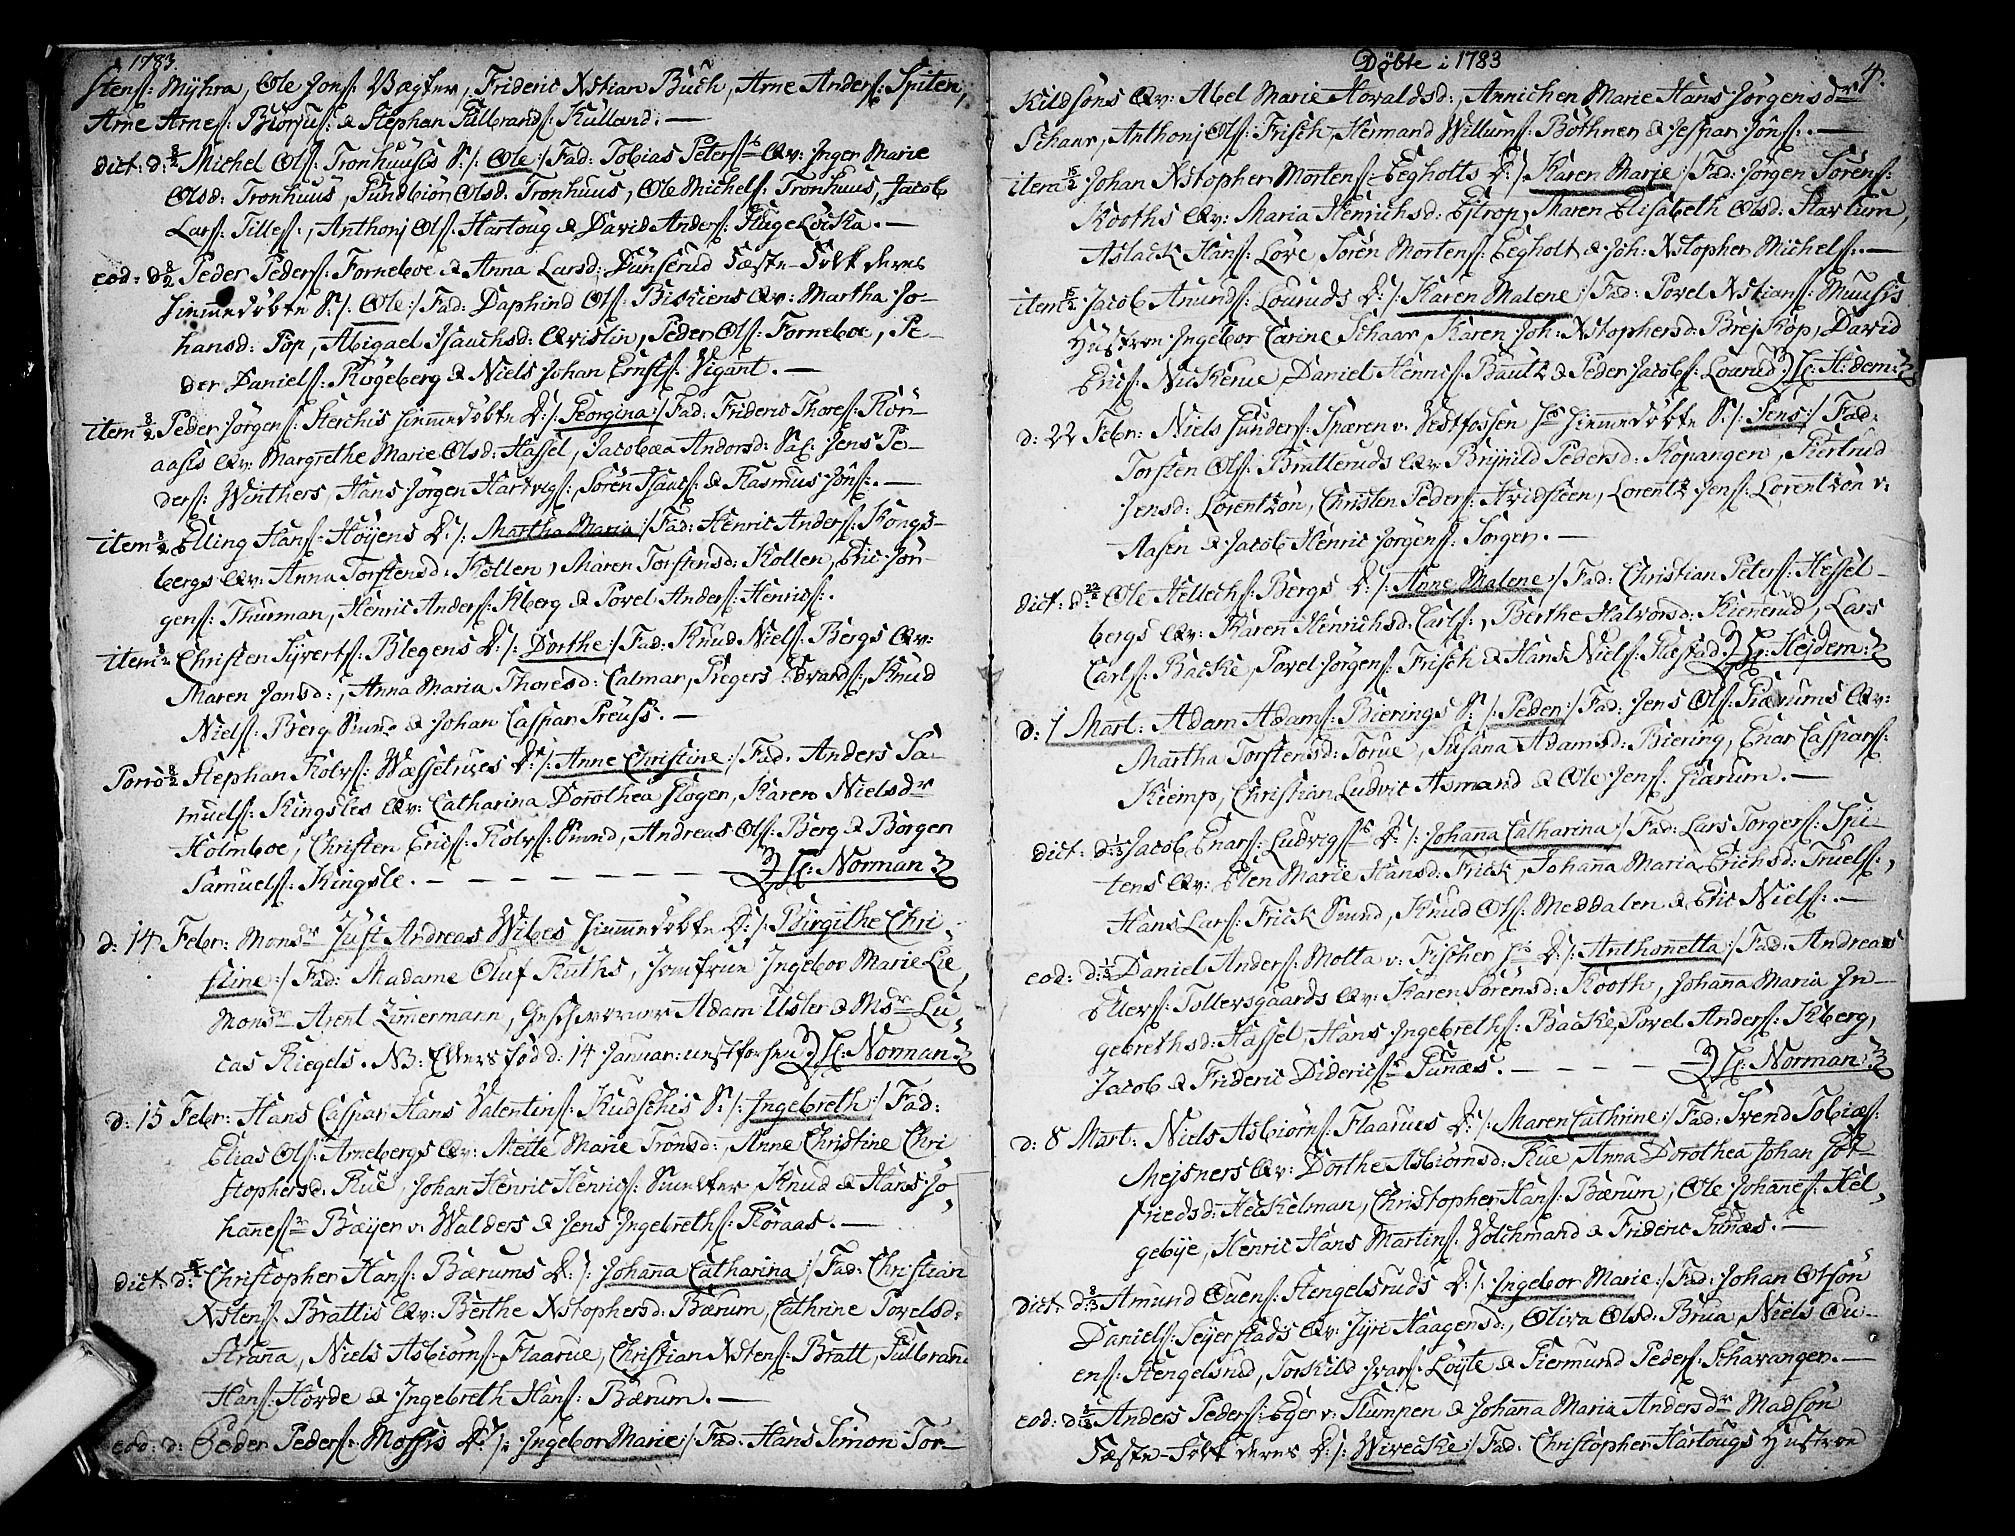 1783.
Stens: Myhra, Ole Jons: Vægter, Frideric Xstian Buch, Arne Anders: Spiten,
Arne Arnes: Biørsu: & Stephan Gulbrands: Kulland. —
dict: d: 8/2 Michel Ols: Tronhuusis S:/: Ole :/ Fad: Tobias Peters: Qv: Inger Marie
Olsd: Tronhuus, Gundbiør Olsd: Tronhuus, Ole Michels: Tronhuus, Jacob
Lars: Tilles:, Anthonj Ols: Hartoug & David Anders: Flugeløcka. —
eod: d 8/2 Peder Peders: Forneboe & Anna Larsd: Dünserud Fæste-Folk deres
hiemmedøbte S:/: Ole :/ Fad: Daphind Ols: Biskiens Qv: Martha Jo-
hansd: Pop, Abigael Isauchsd: Qvistin, Peder Ols: Forneboe, Pe-
der Daniels: Røgeberg & Niels Johan Ernsts: Vigant. —
item 8/2 Peder Jørgens: Sterchis hiemmedøbte D:/: Georgina :/ Fad: Frideric Thores: Kon-
aasis Qv: Margrethe Marie Olsd: Hassel, Jacobæa Andorsd: Sal: Jens Pe-
ders: Winthers, Hans Jørgen Hartvigs:, Søren Isaacs: & Rasmus Jons:. —
item 8/2 Elling Hans: Høyens D:/: Martha Maria :/ Fad: Henric Anders: Kongs-
bergs Qv: Anna Torstensd: Kollen, Maren Torstensd: Kollen, Eric Jør-
gens: Thurman, Henric Anders: Kberg & Povel Anders: Henrics:.
item 8/2 Christen Syverts: Blegens D:/: Dorthe :/ Fad: Knud Niels: Bergs Qv:
Maren Jonsd:, Anna Maria Thoresd: Calmar, Gregers Edvards:, Knud
Niels: Berg Smed & Johan Caspar Preuss. —
Porro 8/2 Stephan Rolvs: Wæsselrues D:/: Anne Christine :/ Fad: Anders Sa-
muels: Kingsles Qv: Catharina Dorothea Flogen, Karen Nielsdr
Holmboe, Christen Erics: Rolvs: Smed, Andreas Ols: Berg & Borgen
Samuels: Kingsle. — H: Norman
d: 14 Febr: Monsr Just Andreas Wibes hiemmedøbte D:/: Birgithe Chri-
stine :/ Fad: Madame Oluf Ruths, Jomfrue Ingebor Marie Lie,
Monsr Arent Zimmermann, Geschworner Adam Usler & Msr Lu-
cas Riegels. NB: Ellers fød d: 14 Januar: H: Norman
d: 15 Febr: Hans Caspar Hans Valentins: Kudschis S:/: Ingebreth :/ Fad:
Elias Ols: Arnebergs Qv: Mette Marie Tronsd:, Anne Christine Chri-
stophersd: Rue, Johan Henric Henrics: Smelter, Knud & Hans Jo-
hannes: Bæyer v: Walders & Jens Ingebreths: Røraas. —
dict: d: 15/2 Christopher Hans: Bærums D:/: Johanna Catharina :/ Fad: Christian
Xstens: Brattis Qv: Berthe Xstophersd: Bærum, Cathrine Povelsd:
Strana, Niels Asbiørns: Flaarue, Christian Xstens: Bratt, Gulbrand
Hans: Hörde & Ingebreth Hans: Bærum. —
eod: d: Peder Peders: Mossis D:/: Ingebor Marie :/ Fad: Hans Simon Tor-
Døbte i 1783
4.
Kildsøns Qv: Abel Marie Hovaldsd:, Annichen Marie Hans Jørgensdr
Schaar, Anthonj Ols: Frisch, Hermand Willums: Bothner & Jespar Jons:. —
item 15/2 Johan Xstopher Mortens: Eegholts D:/: Karen Marie :/ Fad: Jørgen Sørens:
Kooths Qv: Maria Henrichsd: Estrop, Maren Elisabeth Olsd: Hartum,
Aslack Hans: Love, Søren Mortens: Eegholt & Joh: Xstopher Michels:. —
item 15/2 Jacob Anunds: Louruds D:/: Karen Malene :/ Fad: Povel Xstians: Muusis
Hustroe Ingebor Carine Schaar, Karen Joh: Xstophersd: Brejskop, David
Erics: Nuckerue, Daniel Henrics: Bautz & Peder Jacobs: Lourud. H: Hidem
d: 22 Febr: Niels Gunders: Spæren v: Vestfossen hiemmedøbte S:/: Jens :/ Fad:
Torsten Ols: Brutteruds Qv: Brynild Pedersd: Kopangen, Giertrud
Jensd: Lorentzøn, Christen Peders: Hvidsteen, Lorentz Jens: Lorentzøn v:
Aasen & Jacob Henric Jørgens: Sorger. —
dict: d: 22/2 Ole Helleths: Bergs D:/: Anne Malene :/ Fad: Christian Peters: Hessel-
bergs Qv: Karen Henrichsd: Carls:, Berthe Halvorsd: Kiennerud, Lars
Carls: Backe, Povel Jørgens: Frisch & Hans Niels: Ræstad. H: Hejdem
d: 1 Mart: Adam Adams: Bierings S:/: Peder :/ Fad: Jens Ols: Giærums Qv:
Martha Torstensd: Torue, Susana Adamsd: Biering, Enar Caspars:
Kiemp, Christian Ludvic Asmand & Ole Jens: Giærum. —
dict: d: 1/3 Jacob Enars: Ludvigs: D:/: Johanna Catharina :/ Fad: Lars Torgers: Spi-
tens Qv: Elen Marie Hansd: Frick, Johanna Maria Erichsd: Truels:,
Hans Lars: Frick Smed, Knud Ols: Meddalen & Eric Niels:. —
eod: d: 1/3 Daniel Anders: Molta v: Fischer D:/: Anthonetta :/ Fad: Andreas
Ellers: Tollersgaards Qv: Karen Sørensd: Kooth, Johanna Maria In-
gebrethsd: Hassel, Hans Ingebreths: Backe, Povel Anders: Kberg,
Jacob & Frideric Diderics: Funæs. — H: Norman
d: 8 Mart: Niels Asbiørns: Flaarues D:/: Maren Cathrine :/ Fad: Svend Tobiæs:
Mejsners Qv: Dorthe Asbiørnsd: Rue, Anna Dorothea Johan Got-
friedsd: Heckelman, Christopher Hans: Bærum, Ole Johannes: Hel-
gebye, Henric Hans Martins: Volchmand & Frideric Funæs. —
dict: d: 8/3 Amund Ouens: Stengelsruds D:/: Ingebor Marie :/ Fad: Johan Otsøn
Daniels: Sejerstads Qv: Syri Haagensd:, Oliva Olsd: Brua, Niels Ou-
ens: Stengelsrud, Torkild Ivars: Løyte & Giermund Peders: Schavangen. —
eod: d: 8/3 Anders Peders: Eger v: Kumpen & Johanna Maria Andersdr Madsøn
Fæste-Folk deres D:/: Wivecke :/ Fad: Christopher Hartougs Hustroe